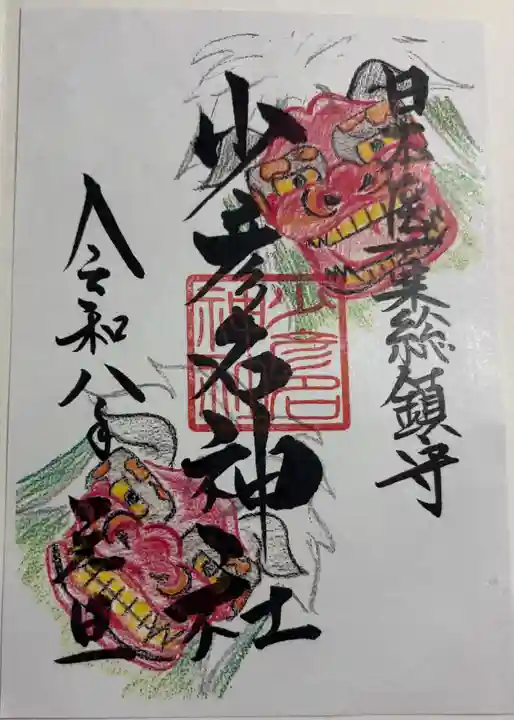 日本医薬総鎮守
少彦名神社
少彦名
神社
令和八年
旦